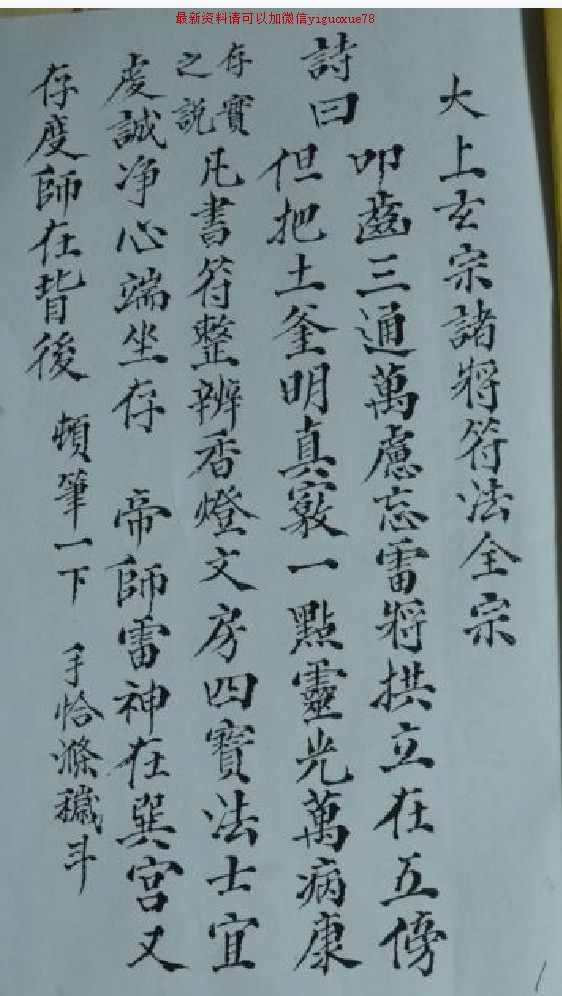 最新资料请可以加微信yiguoxue78
大上玄宗諸將符法全宗
詩曰
叩齒三通萬慮忘雷將拱立在五傍
但把土釜明真竅一點靈光萬病康
存寳之説
凡書符整辨香燈文房四寳法士宜
虔誠净心端坐存 帝師雷神在巽宫又
存度師在背後 頓筆一下 手恰滌穢斗
1